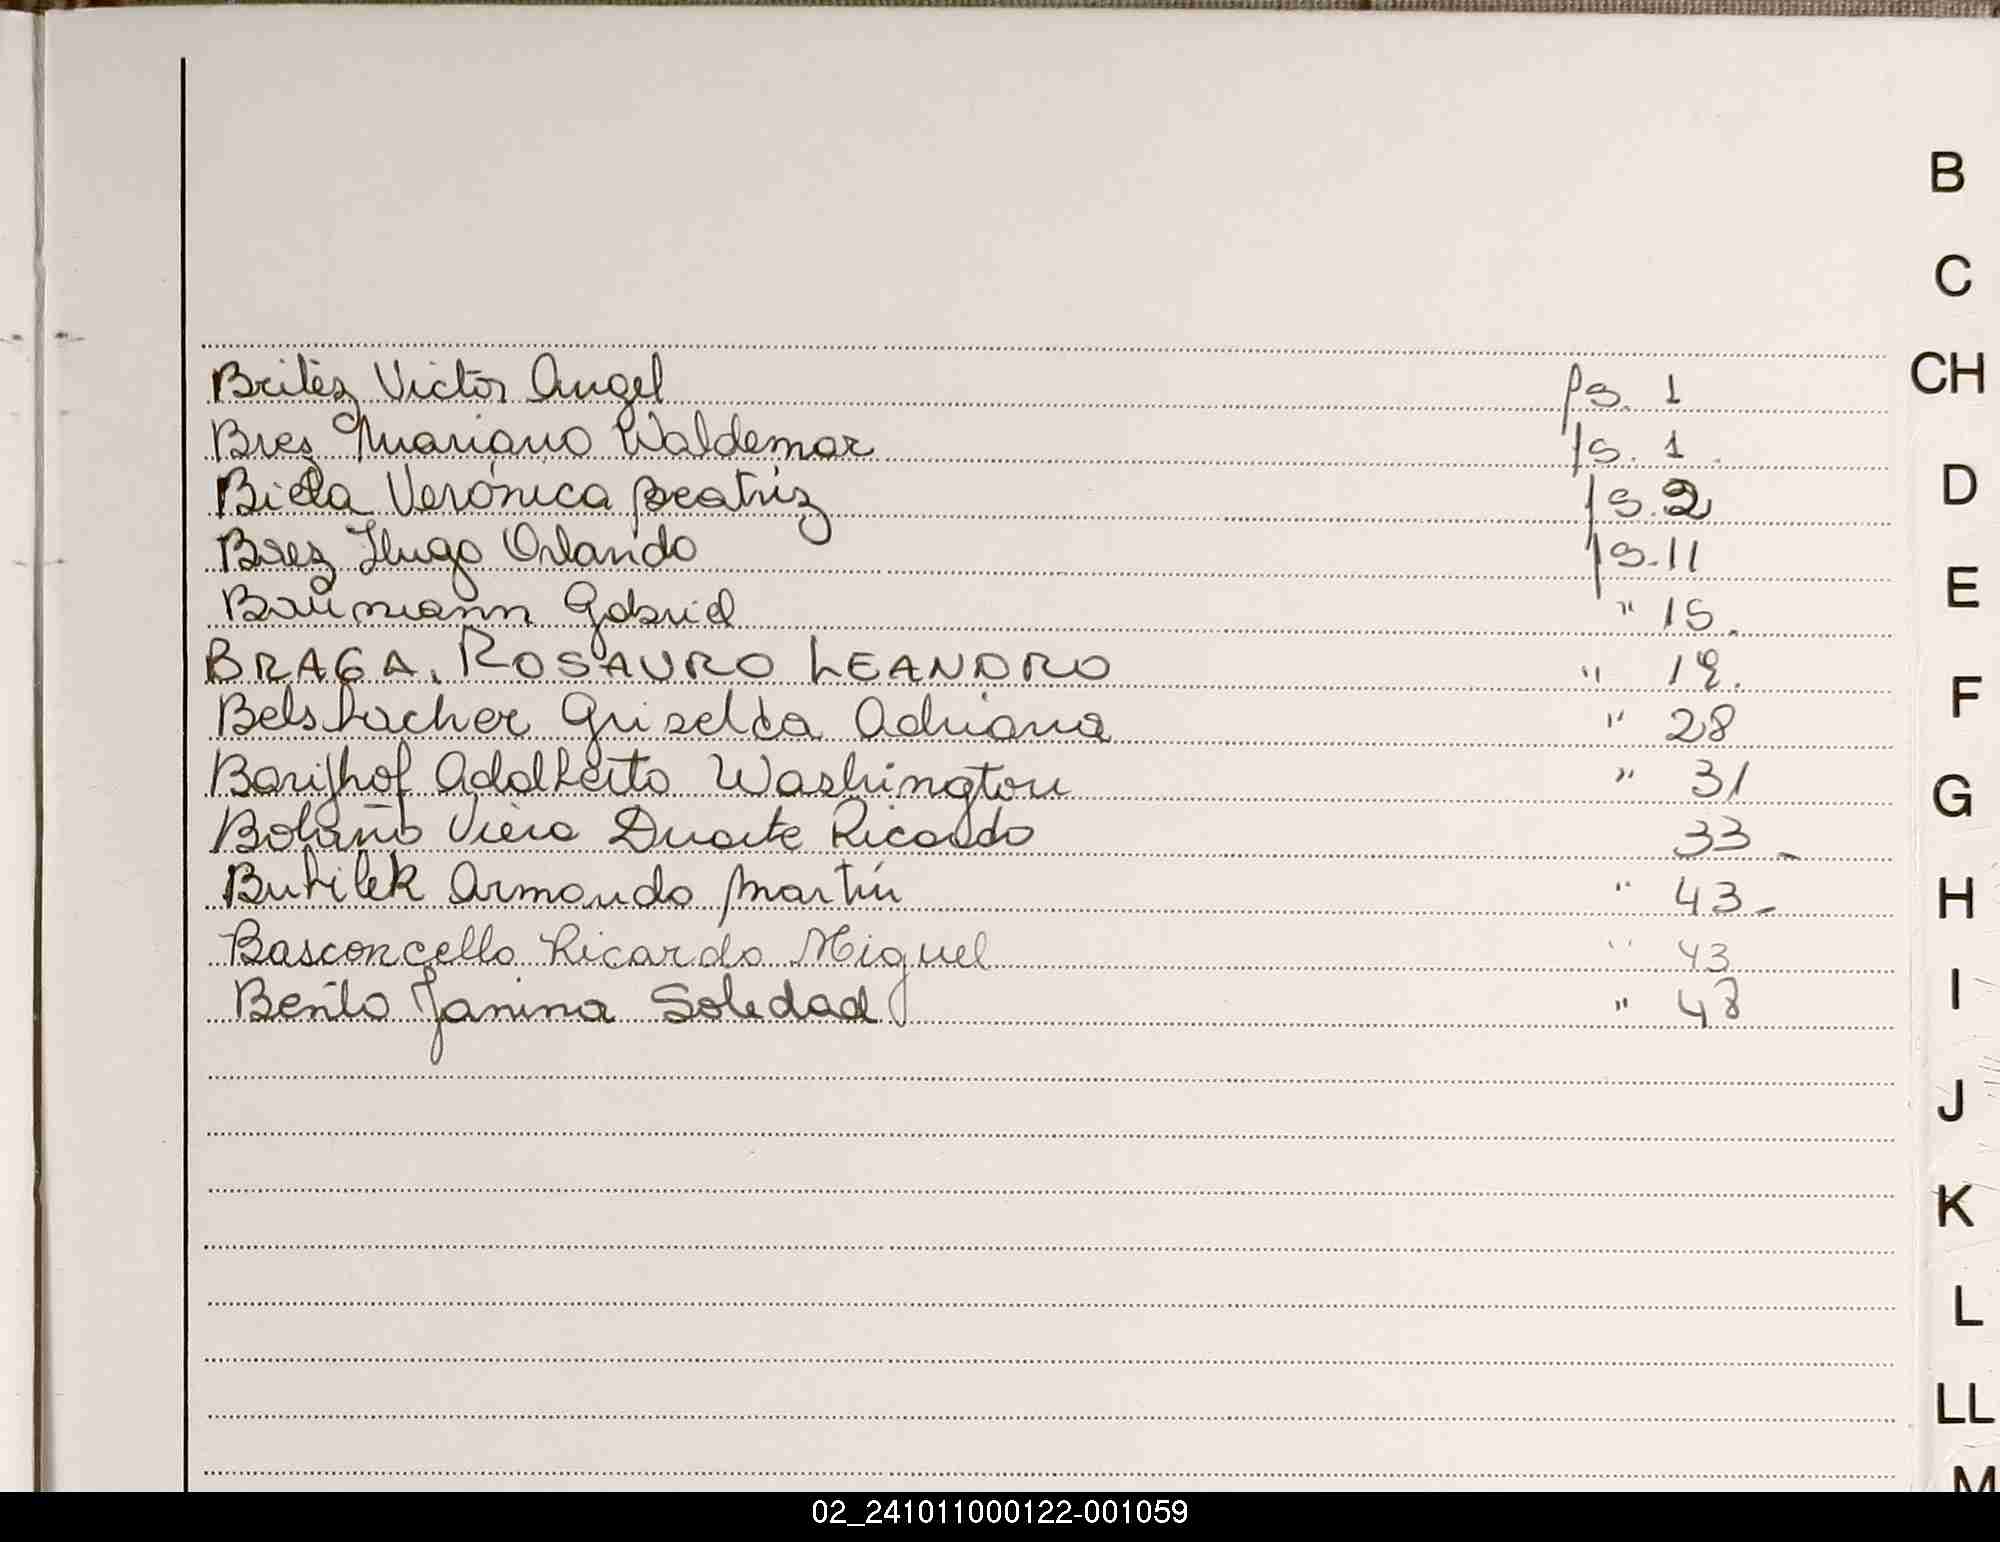 Britéz Victor Angel pg. 1
Brez Mariano Waldemar pg. 1
Biela Verónica Beatriz pg. 2
Brez Hugo Orlando pg. 11
Baumann Gabriel " 15.
BRAGA, ROSAURO LEANDRO " 19.
Belsbacher Griselda Adriana " 28
Barijhof Adalberto Washington " 31
Bolaño Viera Duarte Ricardo 33 -
Butilek Armando Martín " 43 -
Basconcello Ricardo Miguel " 43
Benito Janina Soledad " 48
B
C
CH
D
E
F
G
H
I
J
K
L
LL
M
02_241011000122-001059